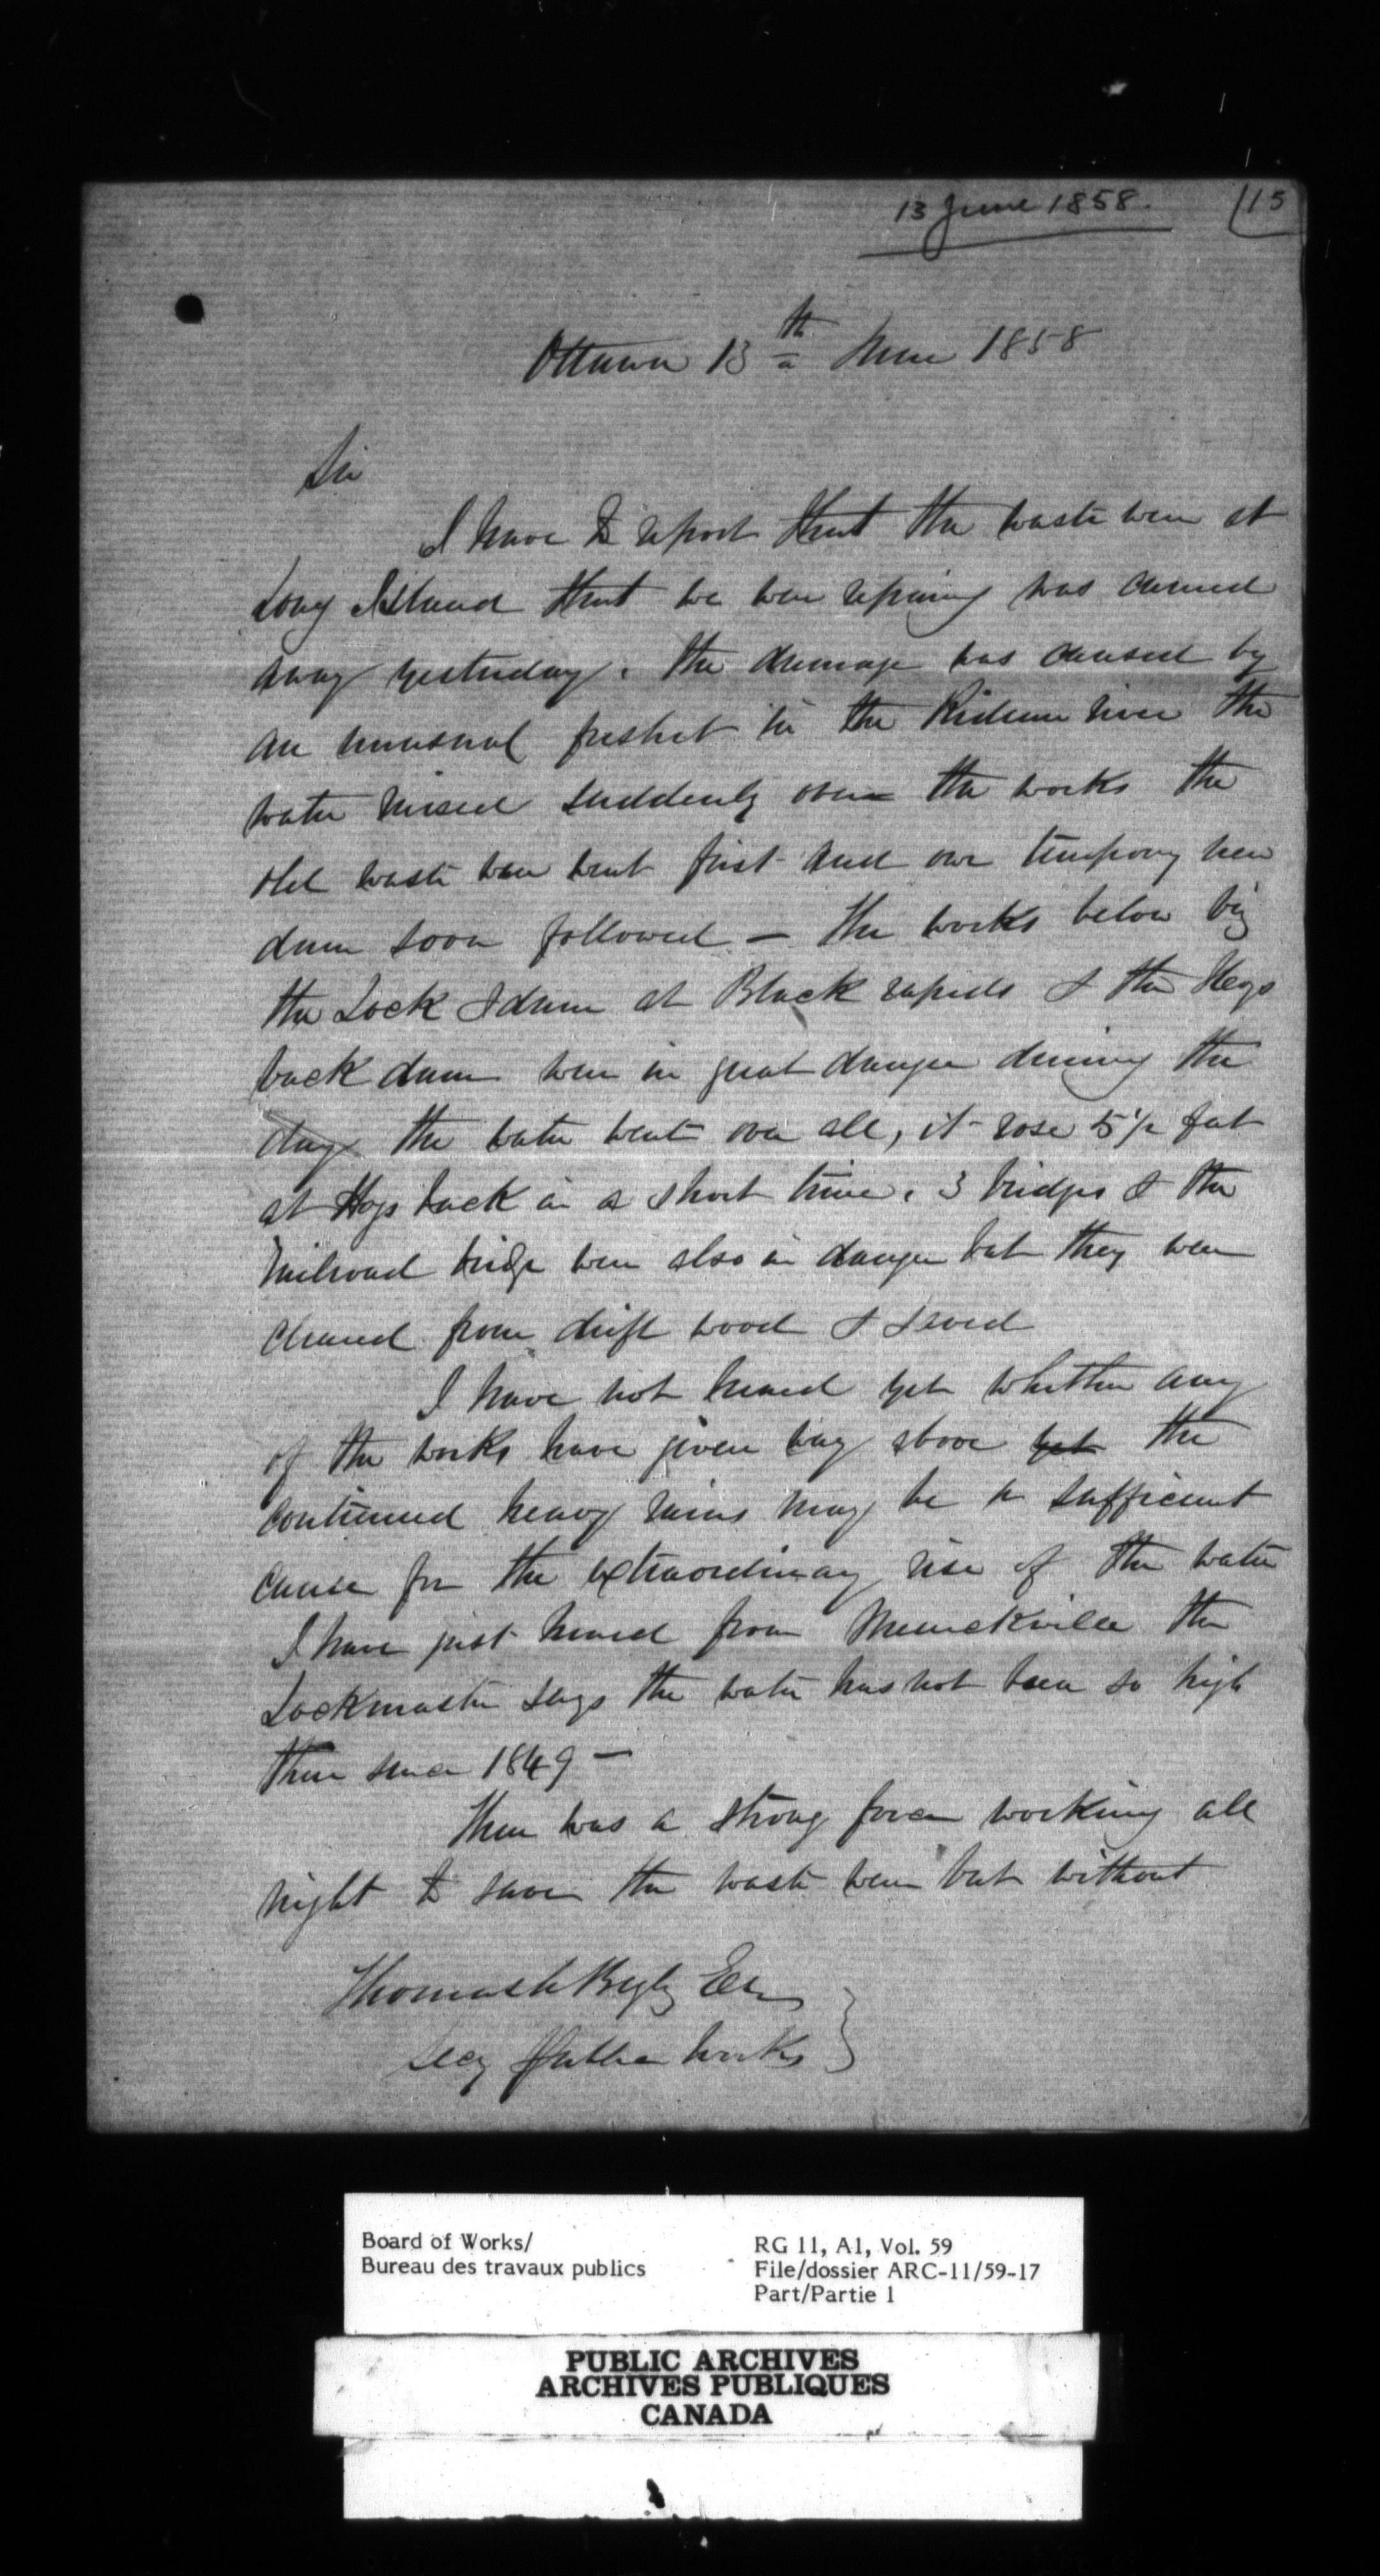 13 June 1858.
15
Ottawa 13th June 1858
Sir
I have to report that the waste weir at
Long Island that we were repairing was carried
away yesterday. the damage was caused by
an unusual freshet in the Rideau river the
water raised suddenly over the works the
old waste weir went first and our temporary new
dam soon followed — The works below
the Lock & dam at Black rapids & the Hogs
back dam were in great danger during the
day the water went over all, it rose 5 1/2 feet
at Hogs back in a short time. 3 bridges & the
railroad bridge were also in danger but they were
cleared from drift wood & saved
I have not heard yet whether any
of the works have given way above yet the
continued heavy rains may be a sufficient
cause for the extraordinary rise of the water
I have just heard from Merrickville the
Lockmaster says the water has not been so high
there since 1849 —
There was a strong force working all
night to save the waste weir but without
Thomas A Begly Esq
Secy Public Works
Board of Works/
Bureau des travaux publics
RG 11, A1, Vol. 59
File/dossier ARC-11/59-17
Part/Partie 1
PUBLIC ARCHIVES
ARCHIVES PUBLIQUES
CANADA